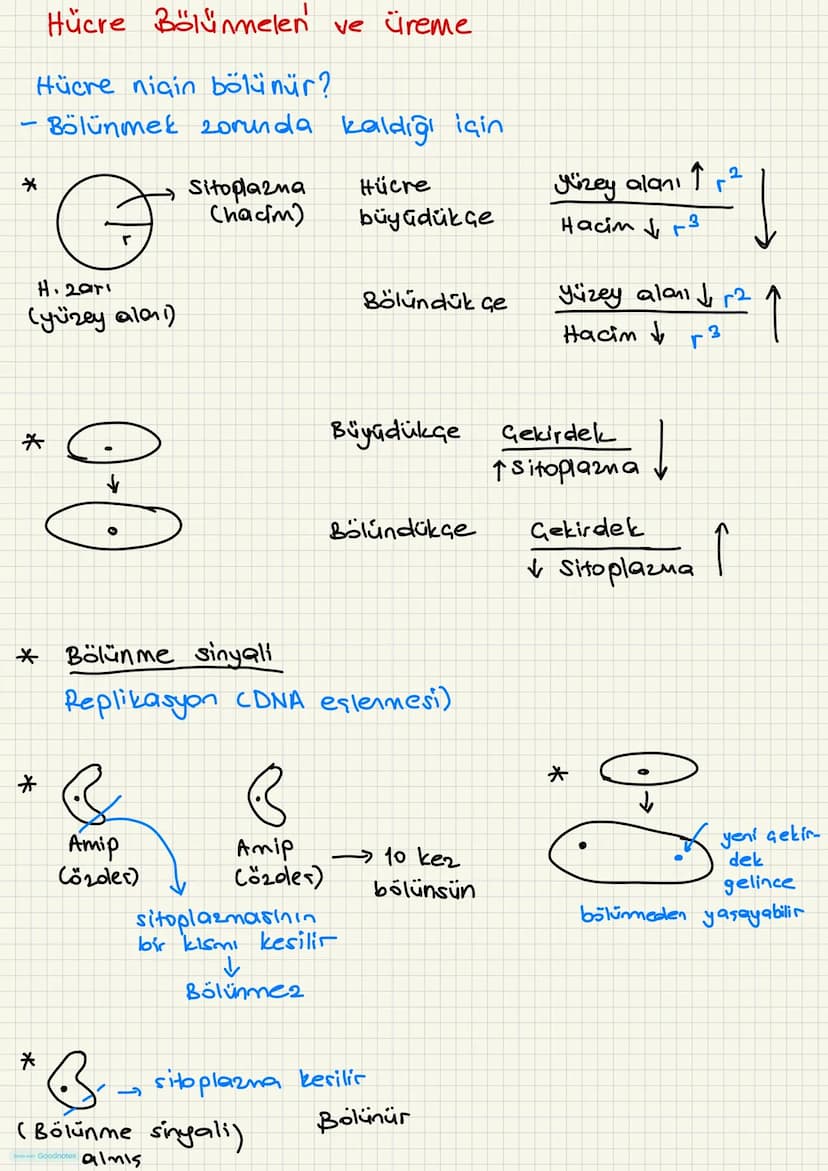 Hücre Bölünmeleri ve üreme
Hücre niçin bölünür?
- Bölünmek zorunda kaldığı için
* Sitoplazma
(hacim)
r
H. zarı
(yüzey alanı)
Hücre
büyüdükçe
yüzey alanı ↑ r²
Hacim ↓ r³
↓
Bölündükçe
yüzey alanı ↓ r²
Hacim ↓ r³
↑
*
Büyüdükçe
Çekirdek
↑ Sitoplazma
↓
Bölündükçe
Çekirdek
↓ Sitoplazma
↑
* Bölünme sinyali
Replikasyon (DNA eşlenmesi)
*
Amip
(özdeş)
sitoplazmasının
bir kısmı kesilir
↓
Bölünmez
Amip
(özdeş)
→ 10 kez
bölünsün
*
yeni çekir-
dek
gelince
bölünmeden yaşayabilir
* → sitoplazma kesilir
(Bölünme sinyali)
almış
Bölünür
Goodnotes